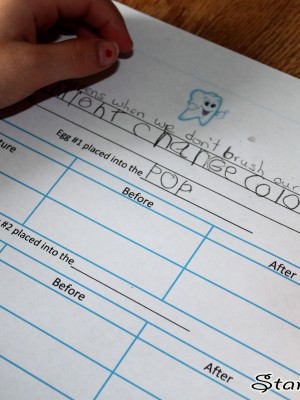 when we don't brush our
might change colo
Egg #1 placed into the POP
ture Before After
#2 placed into the
Before After
Star